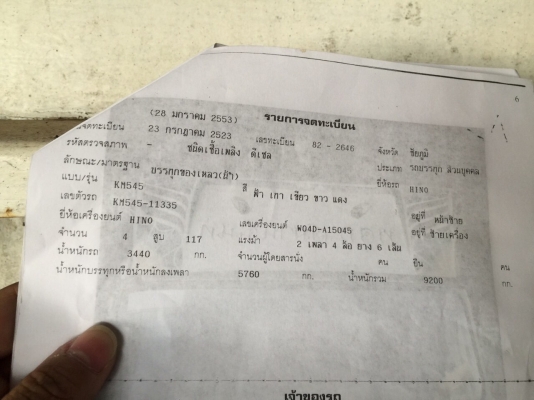 6
(28 มกราคม 2553) รายการจดทะเบียน
วันจดทะเบียน 23 กรกฎาคม 2523 เลขทะเบียน 82 - 2646 จังหวัด ชัยภูมิ
รหัสตรวจสภาพ - ชนิดเชื้อเพลิง ดีเซล ประเภท รถบรรทุก ส่วนบุคคล
ลักษณะ/มาตรฐาน บรรทุกของเหลว(น้ำ) ยี่ห้อรถ HINO
แบบ/รุ่น KM545 สี ฟ้า เทา เขียว ขาว แดง
เลขตัวรถ KM545-11335 อยู่ที่ หน้าซ้าย
ยี่ห้อเครื่องยนต์ HINO เลขเครื่องยนต์ W04D-A15045 อยู่ที่ ซ้ายเครื่อง
จำนวน 4 สูบ 117 แรงม้า 2 เพลา 4 ล้อ ยาง 6 เส้น
น้ำหนักรถ 3440 กก. จำนวนผู้โดยสารนั่ง คน ยืน คน
น้ำหนักบรรทุกหรือน้ำหนักลงเพลา 5760 กก. น้ำหนักรวม 9200 กก.
เจ้าของรถ